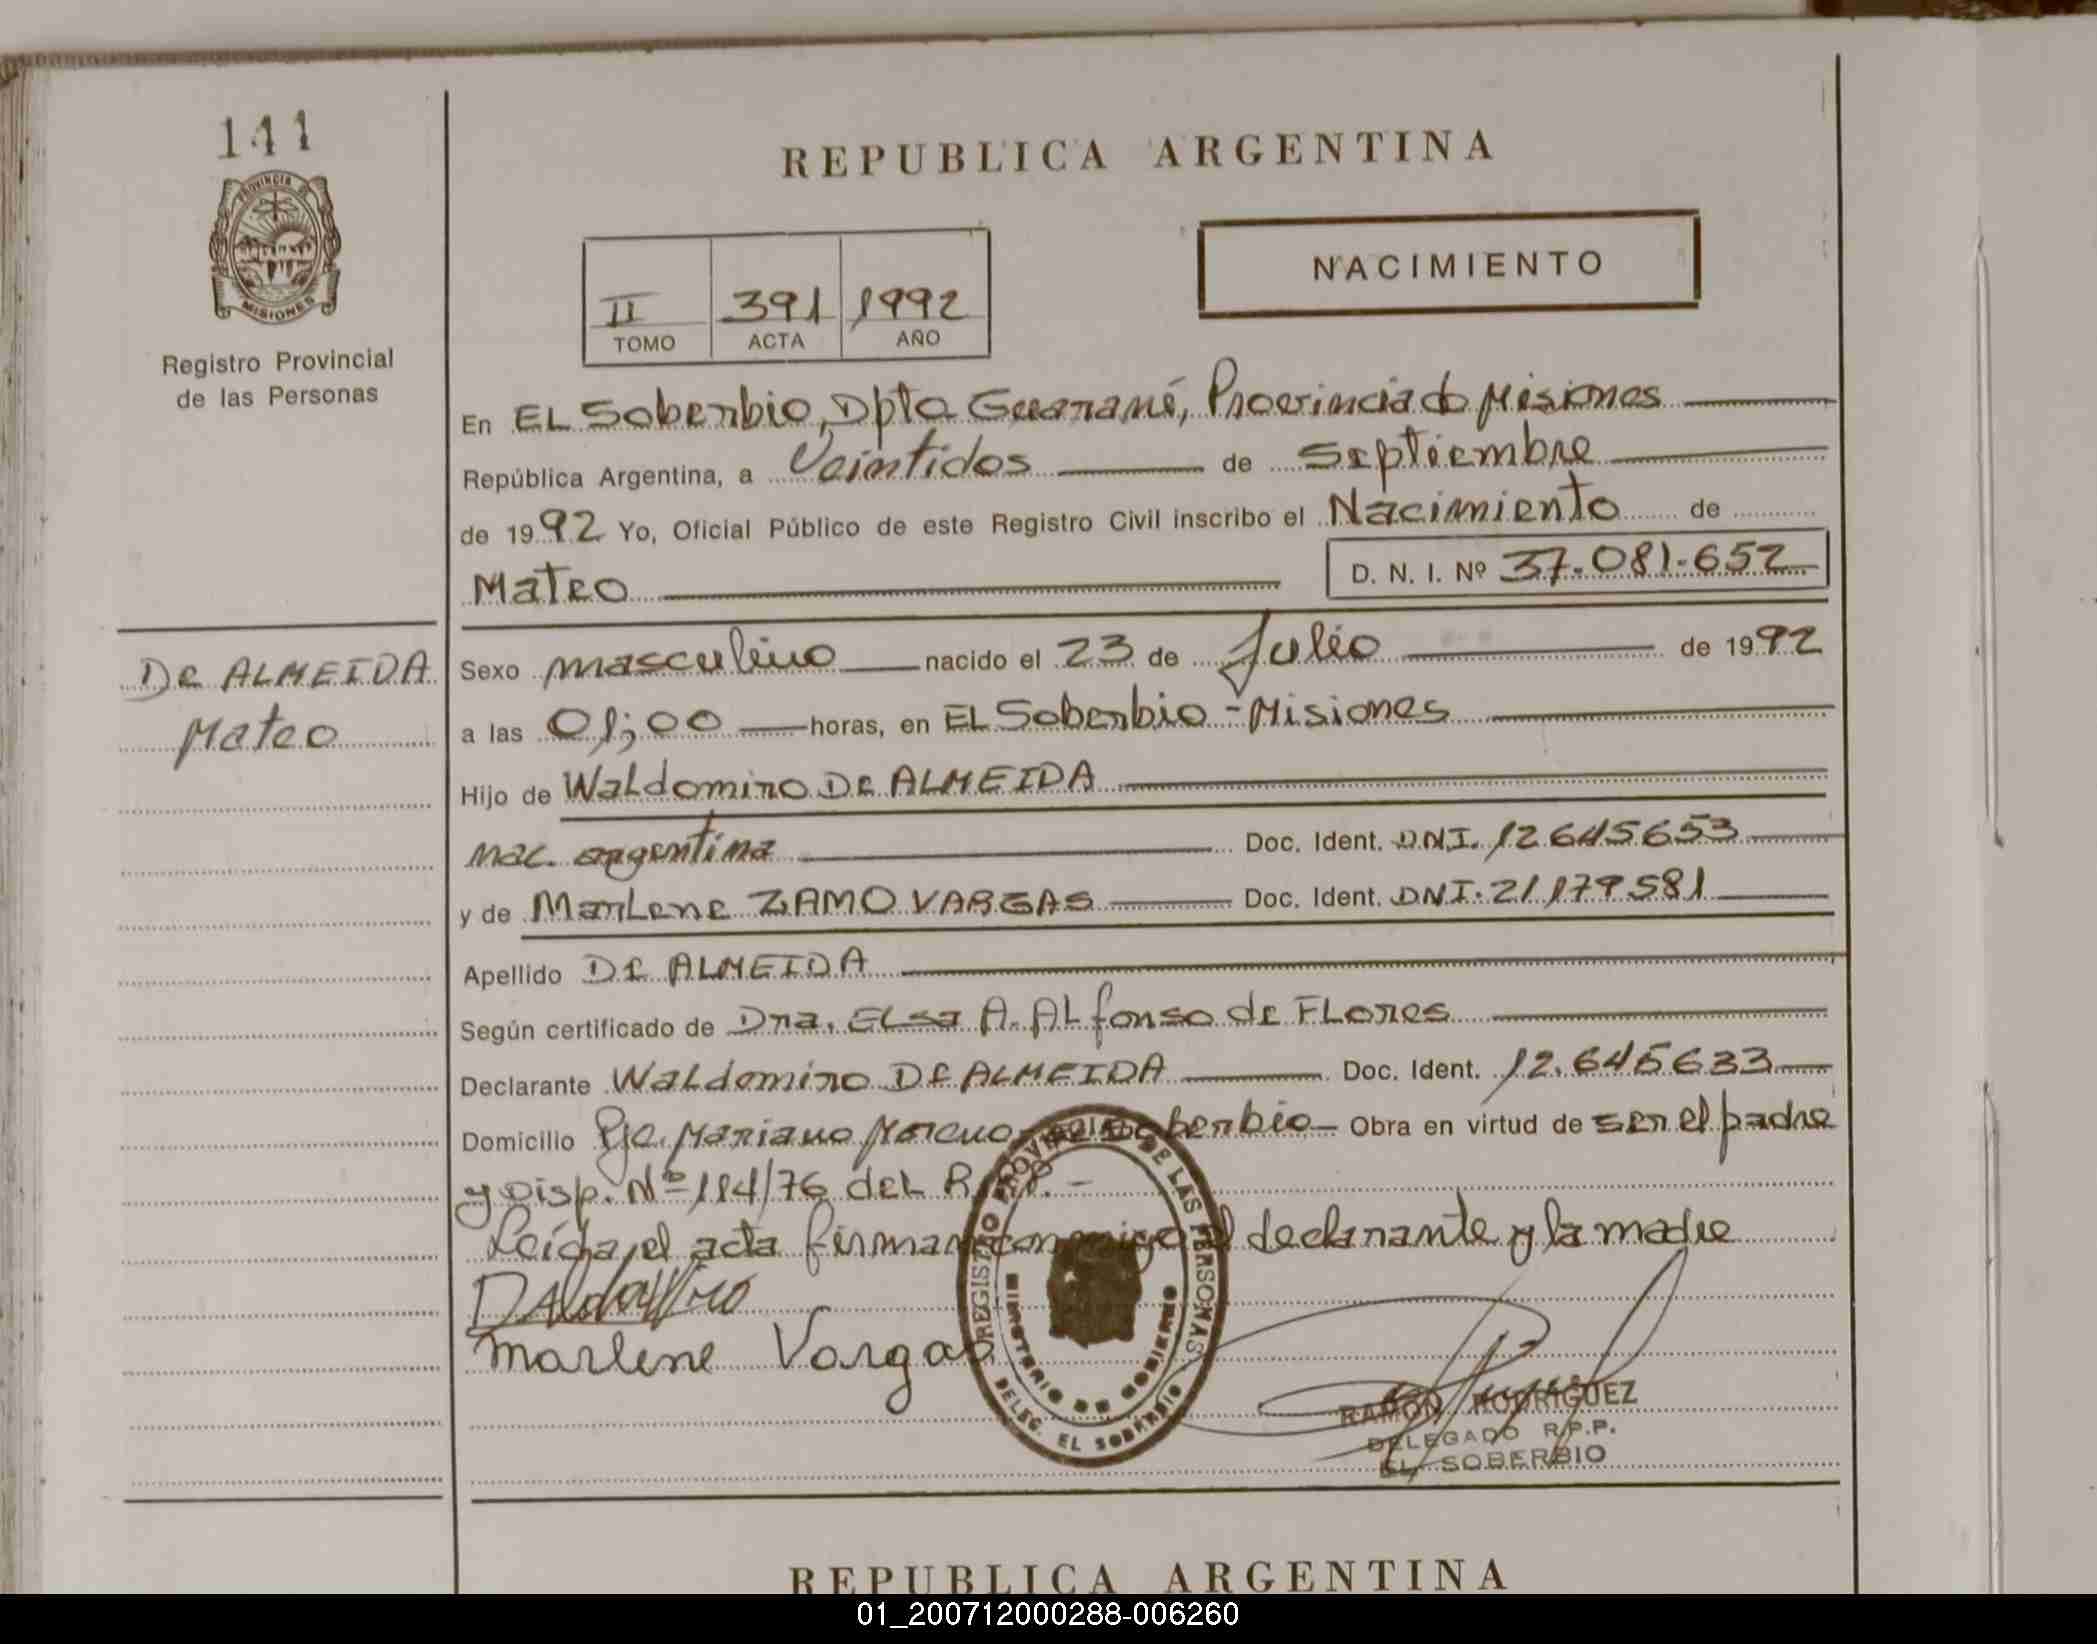 141
PROVINCIA DE
MISIONES
Registro Provincial
de las Personas
REPUBLICA ARGENTINA
II 391 1992
TOMO ACTA AÑO
NACIMIENTO
En EL Soberbio, Dpto Guaraní, Provincia de Misiones
República Argentina, a Veintidos de Septiembre
de 1992 Yo, Oficial Público de este Registro Civil inscribo el Nacimiento de
Mateo D. N. I. Nº 37.081.652
De ALMEIDA
Mateo
Sexo masculino nacido el 23 de Julio de 1992
a las 01;00 horas, en EL Soberbio - Misiones
Hijo de Waldomiro De ALMEIDA
nac. argentina Doc. Ident. DNI. 12645653
y de Marlene ZAMO VARGAS Doc. Ident. DNI. 21179581
Apellido De ALMEIDA
Según certificado de Dra. ELsa A. ALfonso de FLores
Declarante Waldomiro De ALMEIDA Doc. Ident. 12.645633
Domicilio Pje. Mariano Moreno - El Soberbio Obra en virtud de ser el padre
y Disp. Nº 114/76 del R.P.P. -
Leída el acta firman conmigo el declarante y la madre
Marlene Vargas
REGISTRO PROVINCIAL DE LAS PERSONAS
MINISTERIO DE GOBIERNO
DELEG. EL SOBERBIO
RAMON RODRIGUEZ
DELEGADO R.P.P.
EL SOBERBIO
REPUBLICA ARGENTINA
01_200712000288-006260